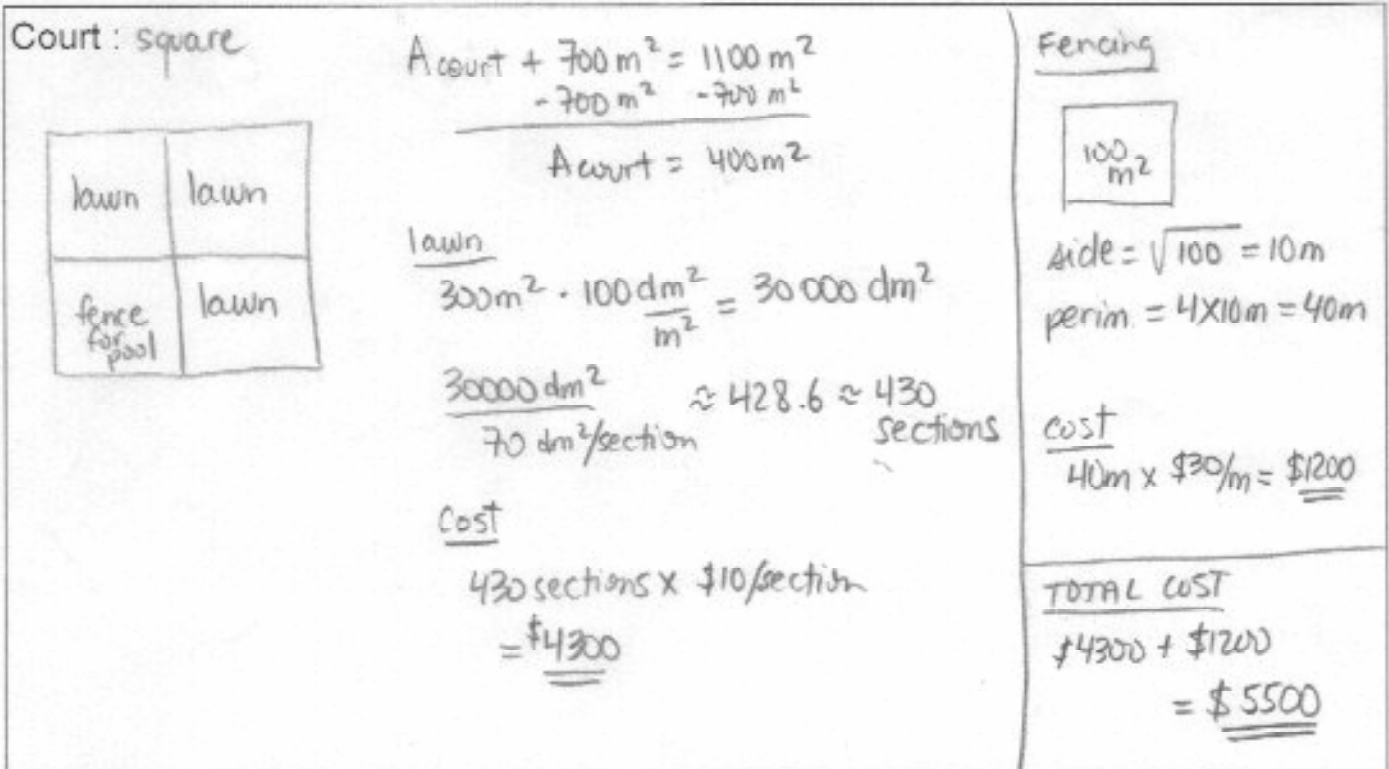 Court : square
lawn
lawn
fence
for
pool
lawn
A court + 700 m² = 1100 m²
-700 m² -700 m²
A court = 400 m²
lawn
300 m² · 100 dm²/m² = 30 000 dm²
30000 dm² / 70 dm²/section ≈ 428.6 ≈ 430
sections
Cost
430 sections x $10/section
= $4300
Fencing
100
m²
side = √100 = 10m
perim. = 4X10m = 40m
cost
40m x $30/m = $1200
TOTAL COST
$4300 + $1200
= $5500